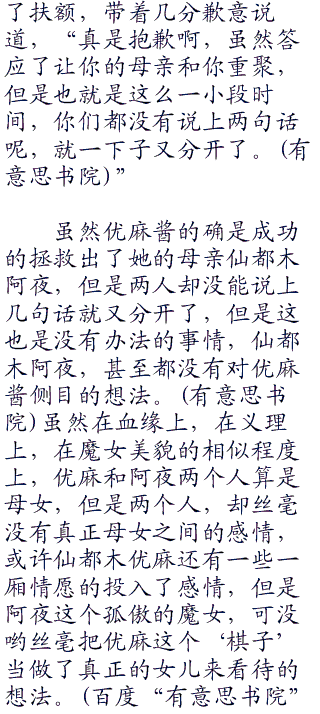 了扶额，带着几分歉意说
道，“真是抱歉啊，虽然答
应了让你的母亲和你重聚，
但是也就是这么一小段时
间，你们都没有说上两句话
呢，就一下子又分开了。(有
意思书院)”
虽然优麻酱的确是成功
的拯救出了她的母亲仙都木
阿夜，但是两人却没能说上
几句话就又分开了，但是这
也是没有办法的事情，仙都
木阿夜，甚至都没有对优麻
酱侧目的想法。(有意思书
院)虽然在血缘上，在义理
上，在魔女美貌的相似程度
上，优麻和阿夜两个人算是
母女，但是两个人，却丝毫
没有真正母女之间的感情，
或许仙都木优麻还有一些一
厢情愿的投入了感情，但是
阿夜这个孤傲的魔女，可没
哟丝毫把优麻这个‘棋子’
当做了真正的女儿来看待的
想法。(百度“有意思书院”